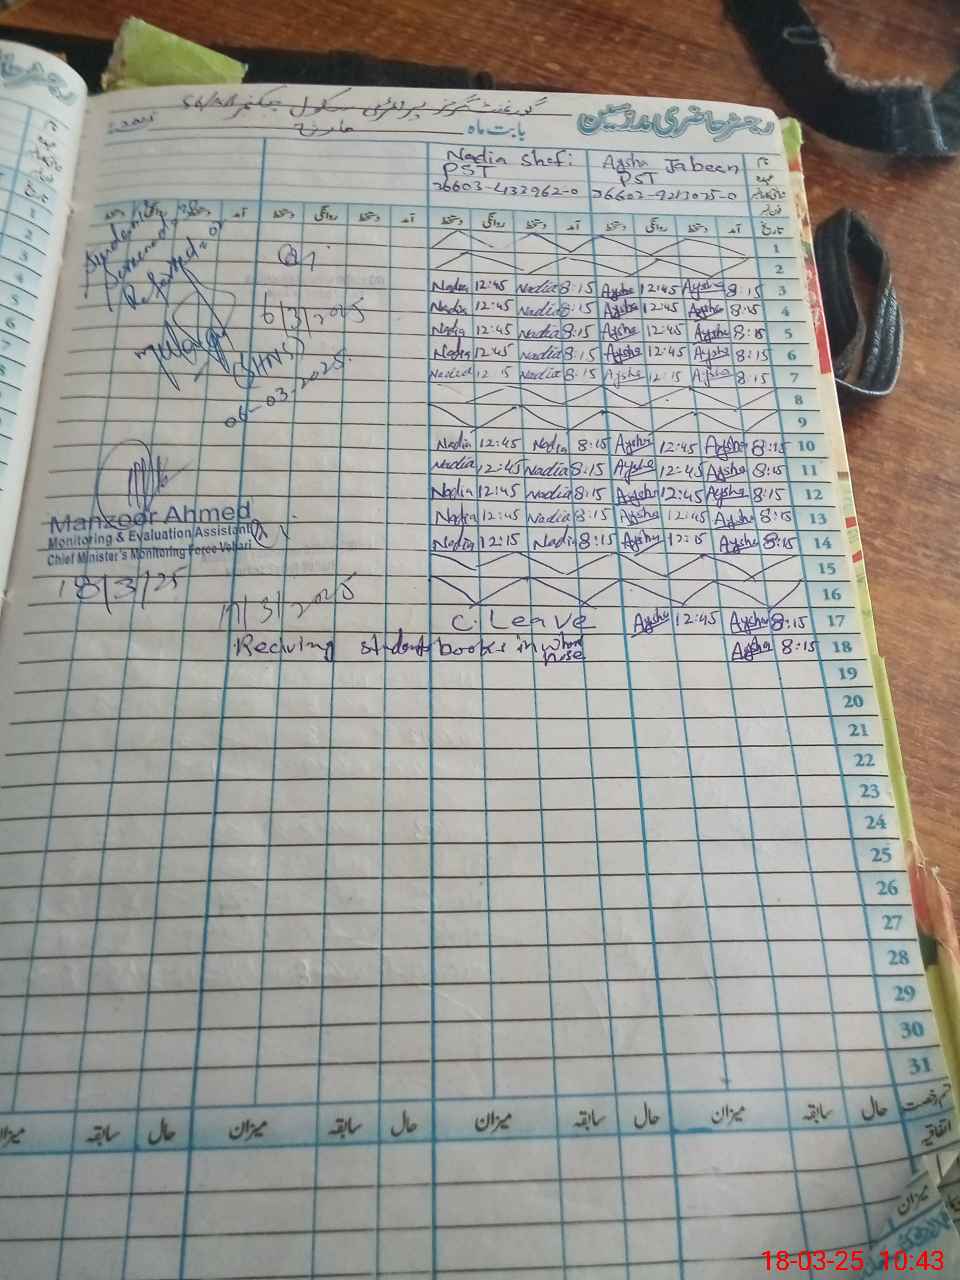 رجسٹر حاضری مدرسین
گورنمنٹ گرلز پرائمری سکول
بابت ماہ مارچ
Nadia Shafi Aysha Jabeen نام
PST PST عہدہ
36603-4132962-0 36602-9213025-0
دستخط روانگی دستخط آمد دستخط روانگی دستخط آمد تاریخ
1
2
Nadia 12:45 Nadia 8:15 Aysha 12:45 Aysha 8:15 3
Nadia 12:45 Nadia 8:15 Aysha 12:45 Aysha 8:15 4
Nadia 12:45 Nadia 8:15 Aysha 12:45 Aysha 8:15 5
Nadia 12:45 Nadia 8:15 Aysha 12:45 Aysha 8:15 6
Nadia 12:15 Nadia 8:15 Aysha 12:15 Aysha 8:15 7
8
9
Nadia 12:45 Nadia 8:15 Aysha 12:45 Aysha 8:15 10
Nadia 12:45 Nadia 8:15 Aysha 12:45 Aysha 8:15 11
Nadia 12:45 Nadia 8:15 Aysha 12:45 Aysha 8:15 12
Nadia 12:45 Nadia 8:15 Aysha 12:45 Aysha 8:15 13
Nadia 12:15 Nadia 8:15 Aysha 12:15 Aysha 8:15 14
15
16
C. Leave Aysha 12:45 Aysha 8:15 17
Reciving student books in Aysha 8:15 18
19
20
21
22
23
24
25
26
27
28
29
30
31
6/3/2025
06-03-2025
Manzoor Ahmed
Monitoring & Evaluation Assistant
Chief Minister's Monitoring Force Vehari
18/3/25
17/3/2025
میزان سابقہ حال میزان سابقہ حال میزان سابقہ حال میزان سابقہ حال قسم رخصت
اتفاقیہ
میزان
18-03-25 10:43